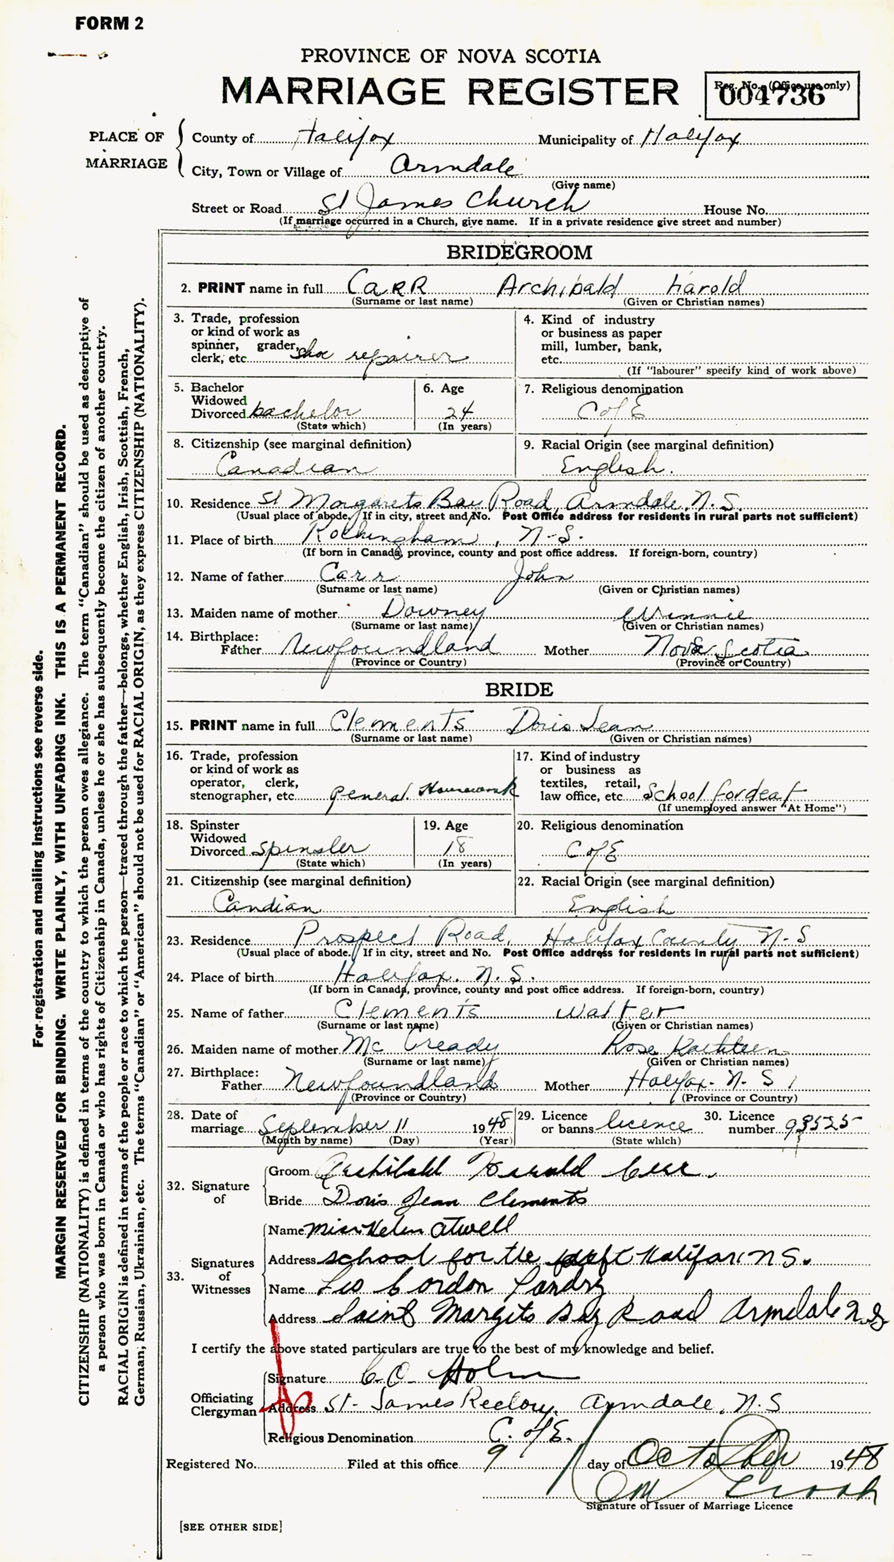 FORM 2
PROVINCE OF NOVA SCOTIA
MARRIAGE REGISTER
Reg. No. (Office use only)
004736
PLACE OF MARRIAGE
County of Halifax Municipality of Halifax
City, Town or Village of Armdale
(Give name)
Street or Road St James Church House No.
(If marriage occurred in a Church, give name. If in a private residence give street and number)
BRIDEGROOM
2. PRINT name in full CARR Archibald Harold
(Surname or last name) (Given or Christian names)
3. Trade, profession or kind of work as spinner, grader, clerk, etc. shoe repairer
4. Kind of industry or business as paper mill, lumber, bank, etc.
(If "labourer" specify kind of work above)
5. Bachelor Widowed Divorced bachelor
(State which)
6. Age 24
(In years)
7. Religious denomination
C of E
8. Citizenship (see marginal definition)
Canadian
9. Racial Origin (see marginal definition)
English.
10. Residence St Margarets Bay Road, Armdale, N.S.
(Usual place of abode. If in city, street and No. Post Office address for residents in rural parts not sufficient)
11. Place of birth Rockingham, N.S.
(If born in Canada, province, county and post office address. If foreign-born, country)
12. Name of father Carr John
(Surname or last name) (Given or Christian names)
13. Maiden name of mother Downey Winnie
(Surname or last name) (Given or Christian names)
14. Birthplace:
Father Newfoundland Mother Nova Scotia
(Province or Country) (Province or Country)
BRIDE
15. PRINT name in full Clements Doris Jean
(Surname or last name) (Given or Christian names)
16. Trade, profession or kind of work as operator, clerk, stenographer, etc. general Housework
17. Kind of industry or business as textiles, retail, law office, etc. School for deaf
(If unemployed answer "At Home")
18. Spinster Widowed Divorced spinster
(State which)
19. Age 18
(In years)
20. Religious denomination
C of E
21. Citizenship (see marginal definition)
Candian
22. Racial Origin (see marginal definition)
English
23. Residence Prospect Road, Halifax County N.S
(Usual place of abode. If in city, street and No. Post Office address for residents in rural parts not sufficient)
24. Place of birth Halifax. N.S.
(If born in Canada, province, county and post office address. If foreign-born, country)
25. Name of father Clements Walter
(Surname or last name) (Given or Christian names)
26. Maiden name of mother Mc Cready Rose Kathleen
(Surname or last name) (Given or Christian names)
27. Birthplace:
Father Newfoundland Mother Halifax. N.S.
(Province or Country) (Province or Country)
28. Date of marriage September 11 1948
(Month by name) (Day) (Year)
29. Licence or banns licence
(State which)
30. Licence number 93525
32. Signature of
Groom Archibald Harold Carr.
Bride Doris Jean Clements
33. Signatures of Witnesses
Name Miss Helen Atwell
Address school for the deaf Halifax N.S.
Name Leo Gordon Landry
Address Saint Margits Bay Road Armdale N.S
I certify the above stated particulars are true to the best of my knowledge and belief.
Officiating Clergyman
Signature
Address St. James Rectory, Armdale, N.S
Religious Denomination C. of E.
Registered No. Filed at this office 9 day of October 1948
Signature of Issuer of Marriage Licence
[SEE OTHER SIDE]
For registration and mailing instructions see reverse side.
MARGIN RESERVED FOR BINDING. WRITE PLAINLY, WITH UNFADING INK. THIS IS A PERMANENT RECORD.
CITIZENSHIP (NATIONALITY) is defined in terms of the country to which the person owes allegiance. The term "Canadian" should be used as descriptive of
a person who was born in Canada or who has rights of Citizenship in Canada, unless he or she has subsequently become the citizen of another country.
RACIAL ORIGIN is defined in terms of the people or race to which the person—traced through the father—belongs, whether English, Irish, Scottish, French,
German, Russian, Ukrainian, etc. The terms "Canadian" or "American" should not be used for RACIAL ORIGIN, as they express CITIZENSHIP (NATIONALITY).